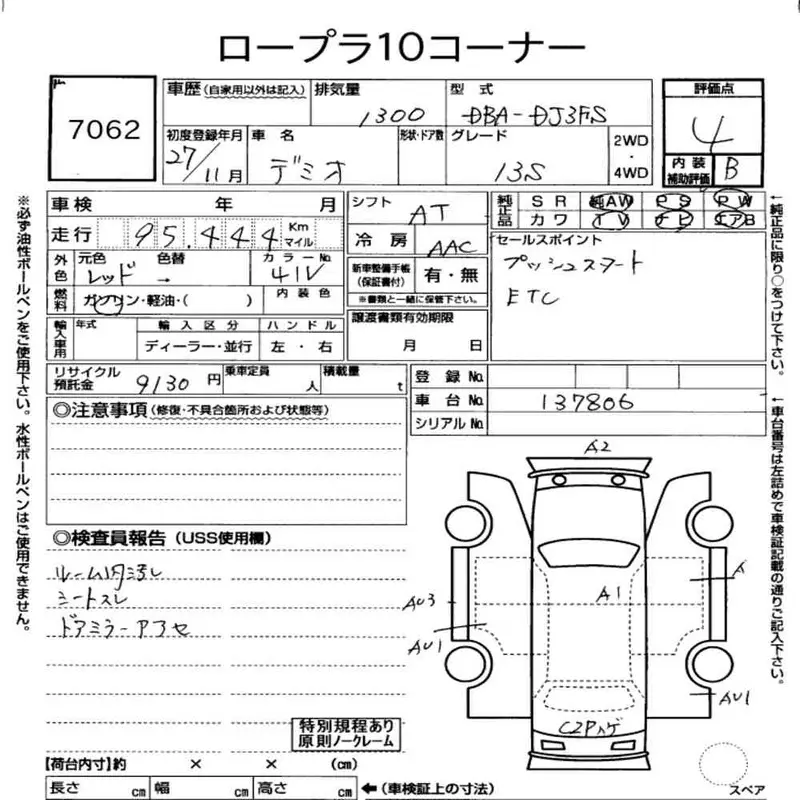 ロープラ10コーナー
7062
車歴 (自家用以外は記入)
排気量
1300
型式
DBA-DJ3FS
評価点
4
内装
補助評価
B
初度登録年月
27/11月
車名
デミオ
形状・ドア数
グレード
13S
2WD
・
4WD
車検 年 月
シフト
AT
純正品
SR 純AW PS PW
カワ TV ナビ エアB
走行 95.444 Km
マイル
冷房 AAC
セールスポイント
プッシュスタート
ETC
外色
元色
レッド
色替
→
カラーNo.
41V
新車整備手帳
(保証書付)
有・無
※書類と一緒に保管下さい。
燃料
ガソリン・軽油・( )
内装色
輸入車用
年式
輸入区分
ハンドル
ディーラー・並行
左・右
譲渡書類有効期限
月 日
リサイクル
預託金
9130 円
乗車定員
人
積載量
t
登録No.
車台No.
137806
シリアルNo.
◎注意事項 (修復・不具合箇所および状態等)
◎検査員報告 (USS使用欄)
ルーム内汚レ
シートスレ
ドアミラーアフセ
特別規程あり
原則ノークレーム
【荷台内寸】約 × × (cm)
長さ cm 幅 cm 高さ cm
←(車検証上の寸法)
A2
A
A1
AU3
AU1
AU1
C2Pハゲ
スペア
※必ず油性ボールペンをご使用下さい。水性ボールペンはご使用できません。
←純正品に限り○をつけて下さい。
←車台番号は左詰めで車検証記載の通りご記入下さい。